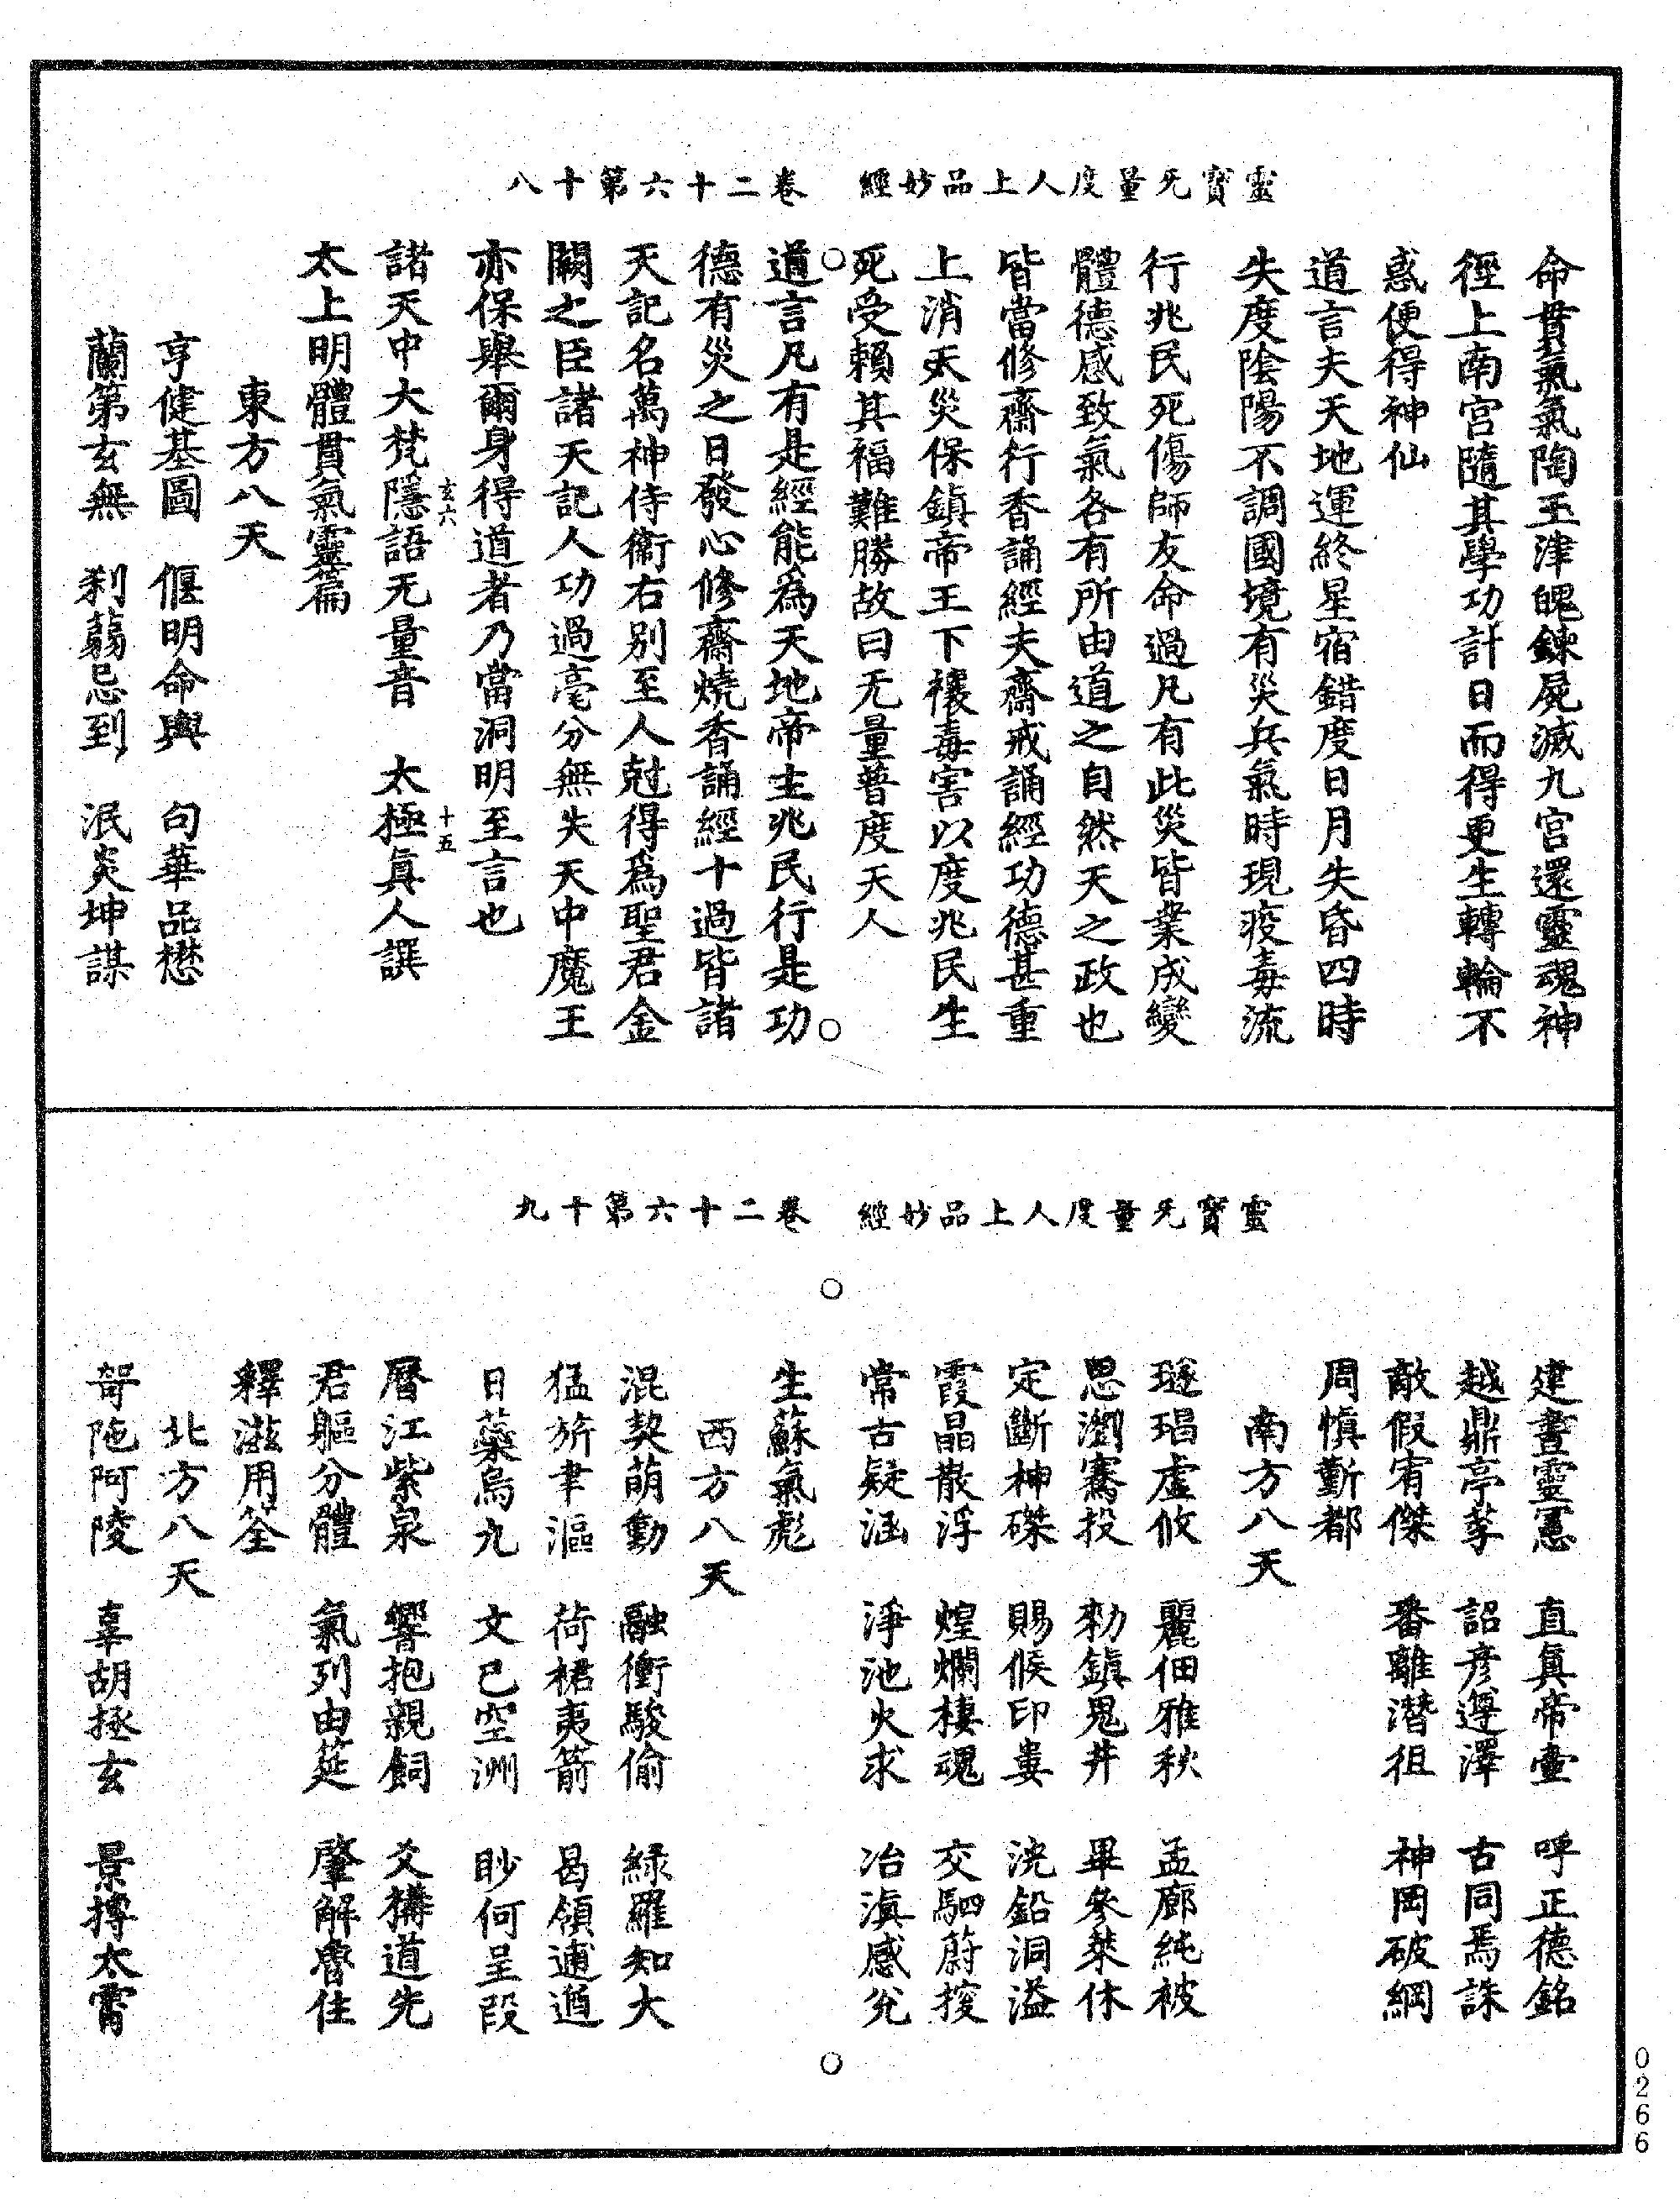 靈寶无量度人上品妙經　卷二十六第十八
命貫氣氣陶玉津魄鍊屍滅九宮還靈魂神
徑上南宮隨其學功計日而得更生轉輪不
惑便得神仙
道言夫天地運終星宿錯度日月失昏四時
失度陰陽不調國境有災兵氣時現疫毒流
行兆民死傷師友命過凡有此災皆業成變
體德感致氣各有所由道之自然天之政也
皆當修齋行香誦經夫齋戒誦經功德甚重
上消天災保鎮帝王下禳毒害以度兆民生
死受賴其福難勝故曰无量普度天人
道言凡有是經能爲天地帝主兆民行是功
德有災之日發心修齋燒香誦經十過皆諸
天記名萬神侍衛右别至人尅得爲聖君金
闕之臣諸天記人功過毫分無失天中魔王
亦保舉爾身得道者乃當洞明至言也
玄六　十五
諸天中大梵隱語无量音　太極眞人譔
太上明體貫氣靈篇
東方八天
亨健基圖　偃明命輿　句華品懋
蘭第玄無　刹蒻忌到　泯炎坤謀
靈寶无量度人上品妙經　卷二十六第十九
建晝靈憲　直眞帝壼　呼正德銘
越鼎亭莩　詔彦遵澤　古同焉誅
敵假宥傑　番離潛徂　神岡破綱
周慎勤都
南方八天
璲琩虚攸　麗佃雅秋　孟廊純被
思瀏騫投　勑鎮鬼井　畢參萊休
定斷神磔　賜候印婁　浇鉛洞溢
霞晶散浮　煌爛棲魂　交駟蔚控
常古疑涵　淨池火求　冶滇感兊
生蘇氣彪
西方八天
混契萌動　融衝駿偷　緑羅知大
猛旂聿漚　荷裙夷箭　曷領逋遁
日蘂烏九　文已空洲　眇何呈段
曆江紫泉　響抱親飼　爻構道先
君軀分體　氣列由筵　肇解魯住
釋滋用筌
北方八天
哿陁阿陵　辜胡拯玄　景摶太霄
0266